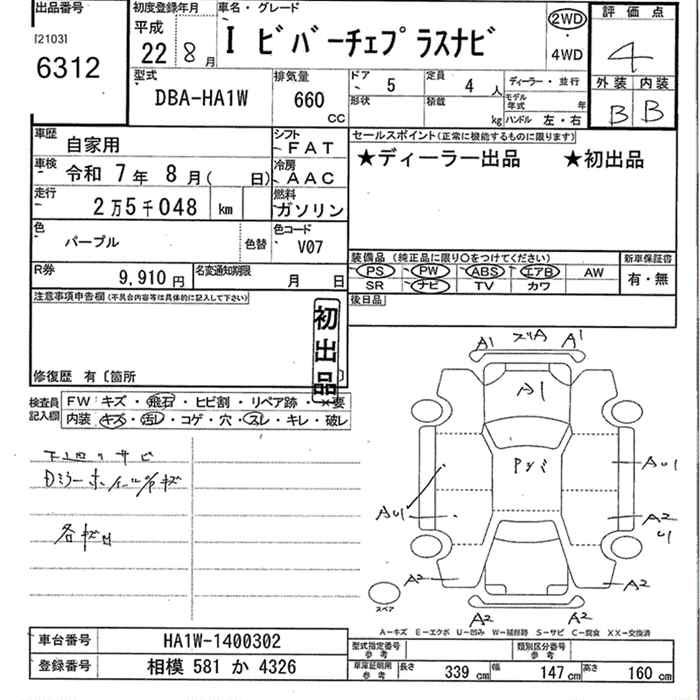 出品番号
[2103]
6312
初度登録年月
平成
22 8月
車名・グレード
I ビバーチェプラスナビ
2WD
・
4WD
評価点
4
外装 内装
B B
型式
DBA-HA1W
排気量
660
CC
ドア
5
定員
4人
形状
積載
kg
ディーラー・並行
モデル年式 年
ハンドル 左・右
車歴
自家用
シフト
FAT
車検
令和 7年 8月( 日)
冷房
AAC
走行
2万5千048 km
燃料
ガソリン
色
パープル
色替
色コード
V07
R券
9,910円
名変通知期限
月 日
セールスポイント(正常に機能するものに限ります)
★ディーラー出品 ★初出品
装備品 (純正品に限り○をつけてください)
PS PW ABS エアB AW
SR ナビ TV カワ
新車保証書
有・無
後日品
注意事項申告欄(不具合内容等は具体的に記入して下さい)
初出品
修復歴 有〔箇所 〕
検査員記入欄
FW:キズ・飛石・ヒビ割・リペア跡・×要
内装:キズ・汚レ・コゲ・穴・スレ・キレ・破レ
下廻りサビ
Dミラーホイールキズ
A1 A1
A1
AU1
AU1
A2
U1
A2 A2
A2 A2
スペア
A-キズ E-エクボ U-凹み W-補修跡 S-サビ C-腐食 XX-交換済
車台番号
HA1W-1400302
登録番号
相模 581 か 4326
型式指定番号
参考
類別区分番号
参考
車庫証明用
参考
長さ 339 cm 幅 147 cm 高さ 160 cm